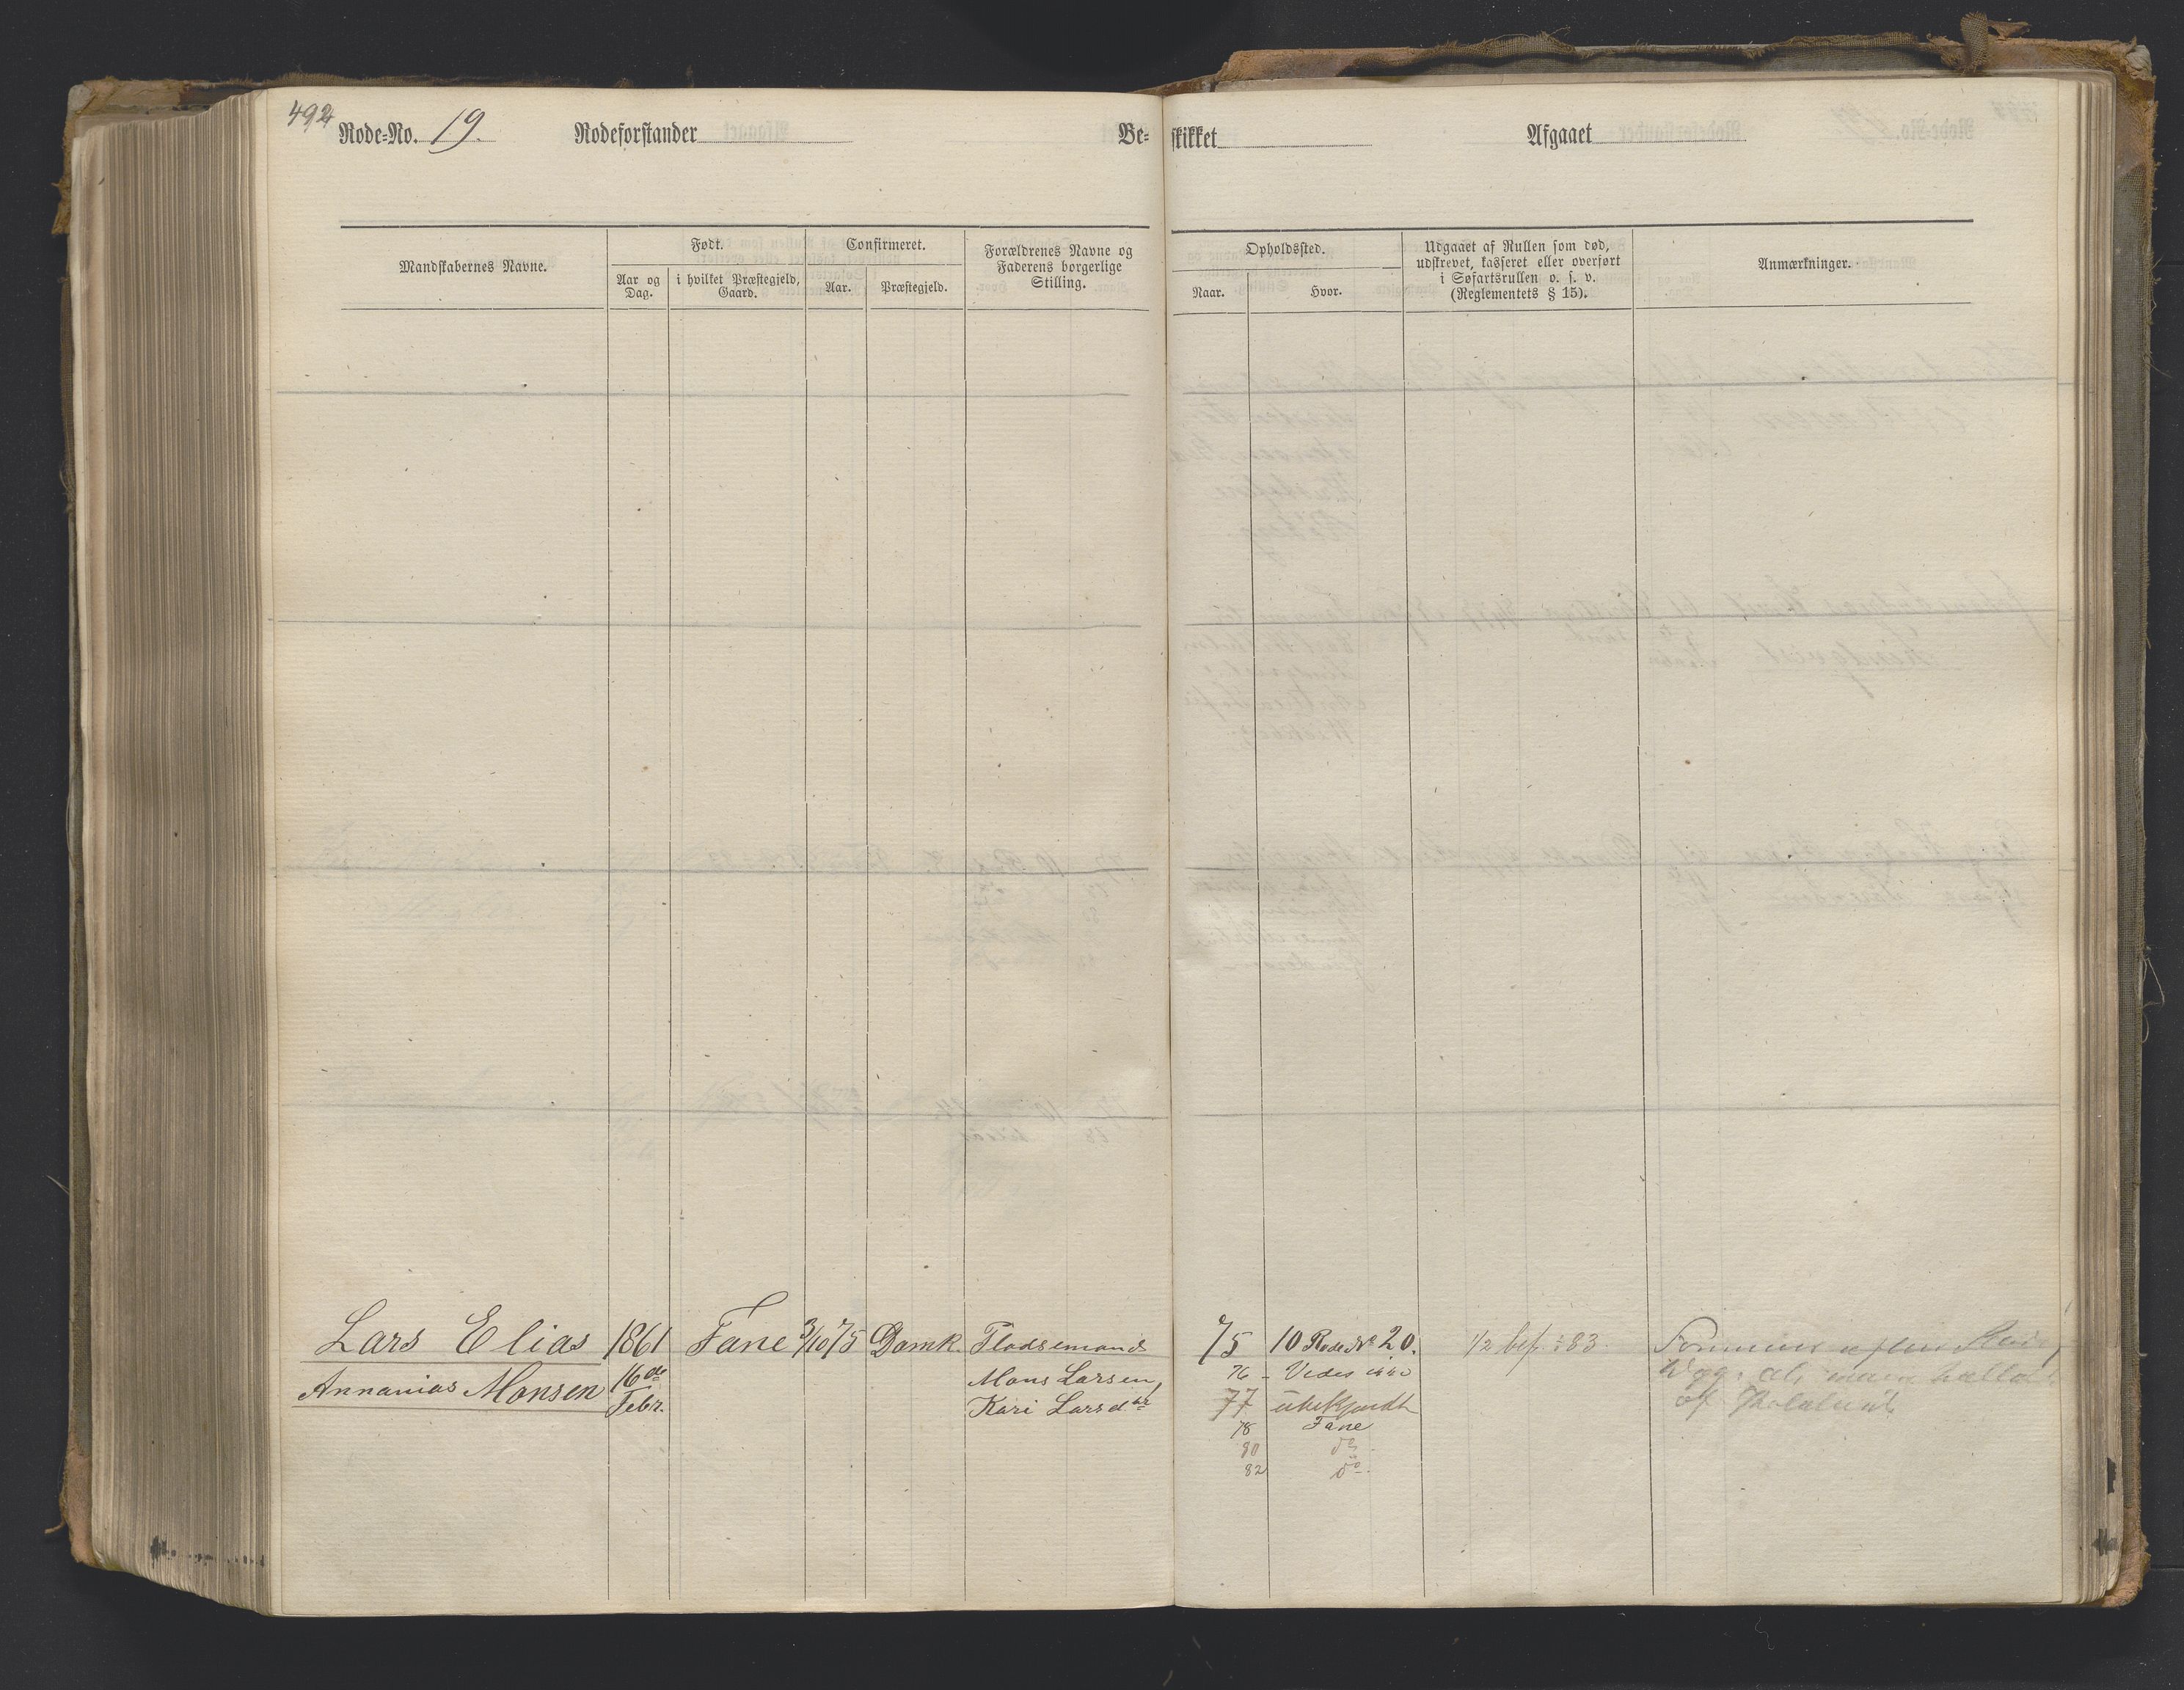 492
Rode-No. 19. Rodeforstander Be-
skikket Afgaaet
Mandskabernes Navne.
Født.
Aar og Dag.
i hvilket Præstegjeld, Gaard.
Confirmeret.
Aar.
Præstegjeld.
Forældrenes Navne og
Faderens borgerlige
Stilling.
Opholdssted.
Naar.
Hvor.
Udgaaet af Rullen som død,
udskrevet, kasseret eller overført
i Søfartsrullen o. s. v.
(Reglementets § 15).
Anmærkninger.
Lars Elias 1861 Fane 3/10 75 Domk. Pladsemands
Annanias Monsen 16de Mons Larsen,
Febr. Kari Larsdtr
75 10 Rode No 20. 1/2 bef. : 83.
76 - Vides
77 ubekjendt af
78 Fane
80 do.
82 do.